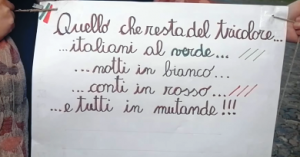 Quello che resta del tricolore...
...italiani al verde...
...notti in bianco...
...conti in rosso...
...e tutti in mutande!!!